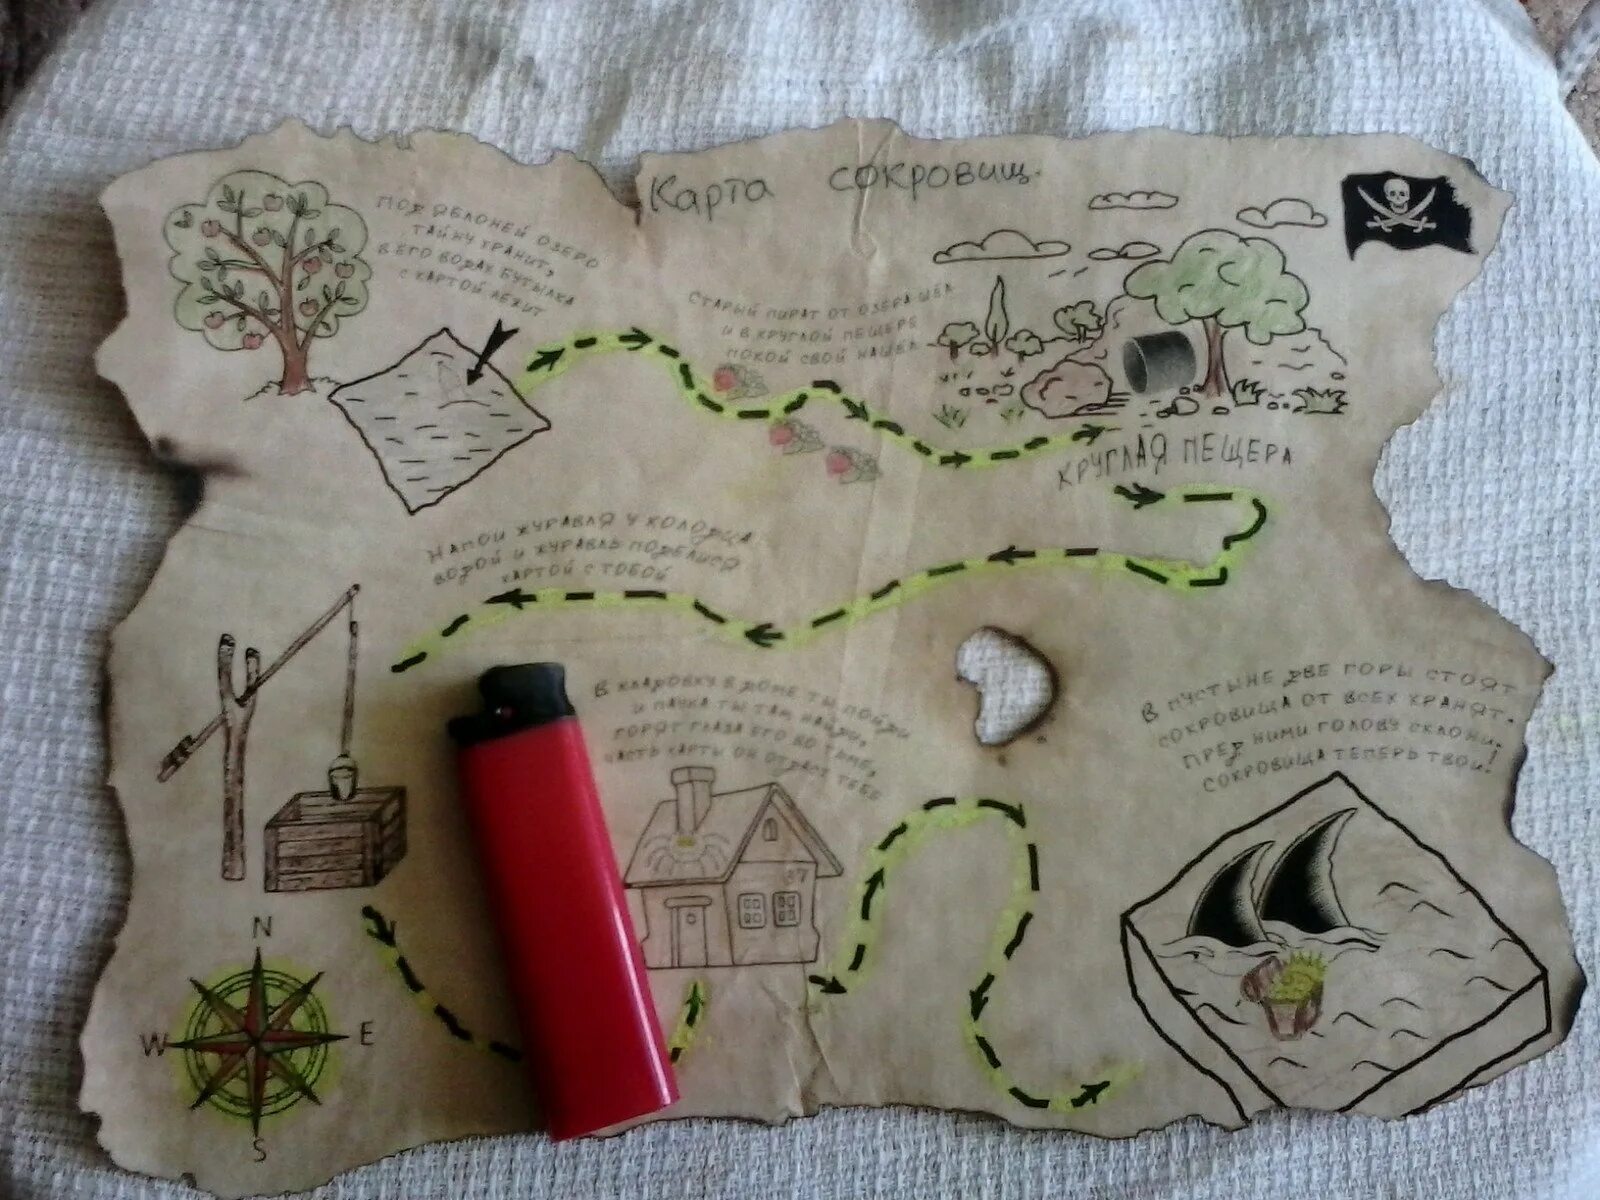 Карта сокровищ.
ПОД ЯБЛОНЕЙ ОЗЕРО
ТАЙНУ ХРАНИТ,
В ЕГО ВОДАХ БУТЫЛКА
С КАРТОЙ ЛЕЖИТ
СТАРЫЙ ПИРАТ ОТ ОЗЕРА ШЁЛ
И В КРУГЛОЙ ПЕЩЕРЕ
ПОКОЙ СВОЙ НАШЁЛ
КРУГЛАЯ ПЕЩЕРА
НАПОИ ЖУРАВЛЯ У КОЛОДЦА
ВОДОЙ И ЖУРАВЛЬ ПОДЕЛИСЯ
КАРТОЙ С ТОБОЙ
В КЛАДОВКУ В ДОМЕ ТЫ ПОЙДИ
И ПАУКА ТЫ ТАМ НАЙДИ,
ГОРЯТ ГЛАЗА ЕГО ВО ТЬМЕ,
ЧАСТЬ КАРТЫ ОН ОТДАСТ ТЕБЕ
37
В ПУСТЫНЕ ДВЕ ГОРЫ СТОЯТ
СОКРОВИЩА ОТ ВСЕХ ХРАНЯТ.
ПРЕД НИМИ ГОЛОВУ СКЛОНИ.
СОКРОВИЩА ТЕПЕРЬ ТВОИ!
N
W
E
S